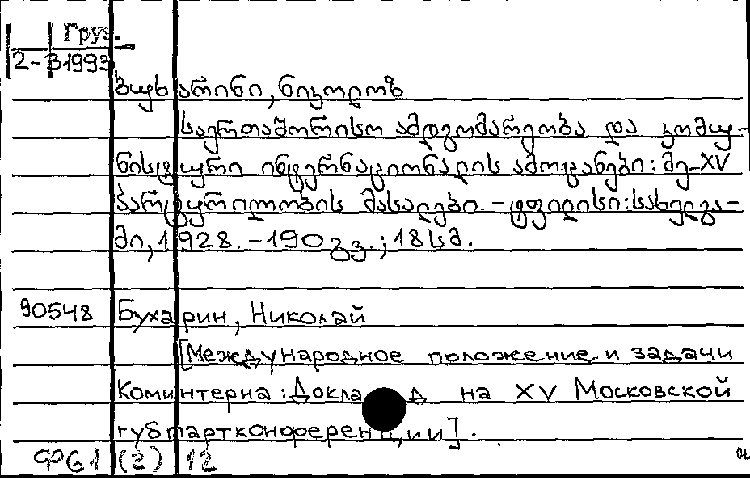 Груз.
2-31993
ბუხარინი, ნიკოლოზ
საერთაშორისო ამდგომარეობა და კომუ-
ნისტური ინტერნაციონალის ამოცანები: მე-XV
პარტყრილობის მასალები. - ტფილისი: სახელგა-
მი, 1928. - 190 გვ.; 18 სმ.
90548 Бухарин, Николай
[Международное положение и задачи
Коминтерна: Доклад на XV Московской
губпартконференции].
Ф61 (2) 12